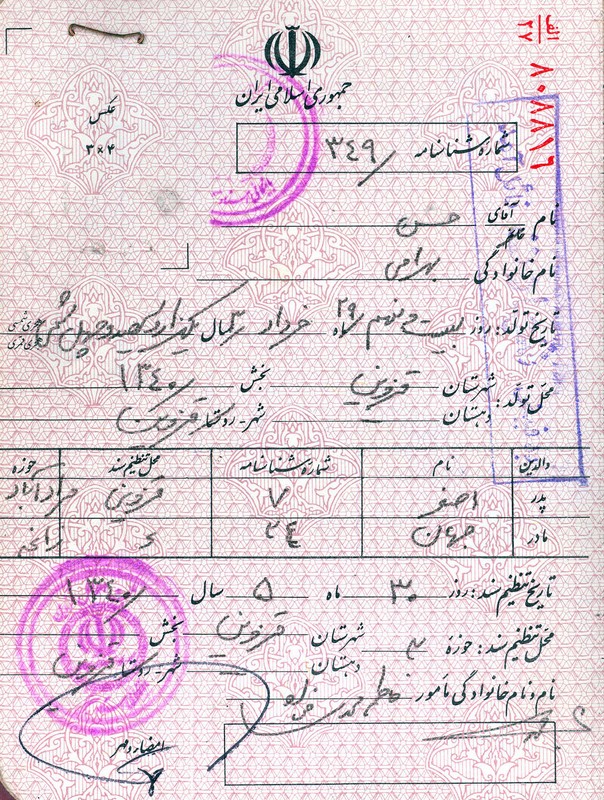 الف
۲۷
۸۰۸۸۱۹
جمهوری اسلامی ایران
عکس
۳×۴
شمارهٔ شناسنامه ۳۴۹/
نام آقای خانم حسن
نام خانوادگی بهرامی
تاریخ تولد: روز بیست و نهم ۲۹/ ماه خرداد ۳/ سال یکهزار و سیصد و چهل شمسی هجری شمسی هجری قمری
محل تولد: شهرستان قزوین بخش ۱۳۴۰/
دهستان شهر- روستا قزوین
والدین نام شمارهٔ شناسنامه محل تنظیم سند حوزه
پدر اصغر ۷ قزوین مرادآباد
مادر جهان ۲۴
تاریخ تنظیم سند: روز ۳۰ ماه ۵ سال ۱۳۴۰/
محل تنظیم سند: حوزه ۳ شهرستان قزوین بخش
دهستان شهر- روستا قزوین
نام و نام خانوادگی مأمور
امضاء و مهر